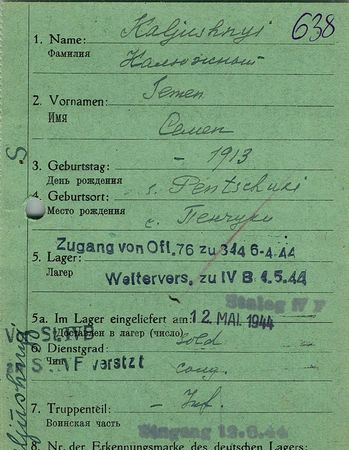 638
1. Name: Kaljushnyi
Фамилия Калюжный
2. Vornamen: Semen
Имя Семен
3. Geburtstag: - 1913
День рождения
4. Geburtsort: s. Pentschuki
Место рождения с. Пенчуки
Zugang von Ofl. 76 zu 344 6-4.44
5. Lager:
Лагер
Weitervers. zu IV B 1.5.44
Stalag IV F
5a. Im Lager eingeliefert am: 12. MAI. 1944
Доставлен в лагер (число)
St. IV B
6. Dienstgrad: sold
Чин солд.
IV F verstzt
7. Truppenteil: - Inf.
Воинская часть
Eingang 12.6.44
8. Nr. der Erkennungsmarke des deutschen Lagers:
Kaljushnyi
S